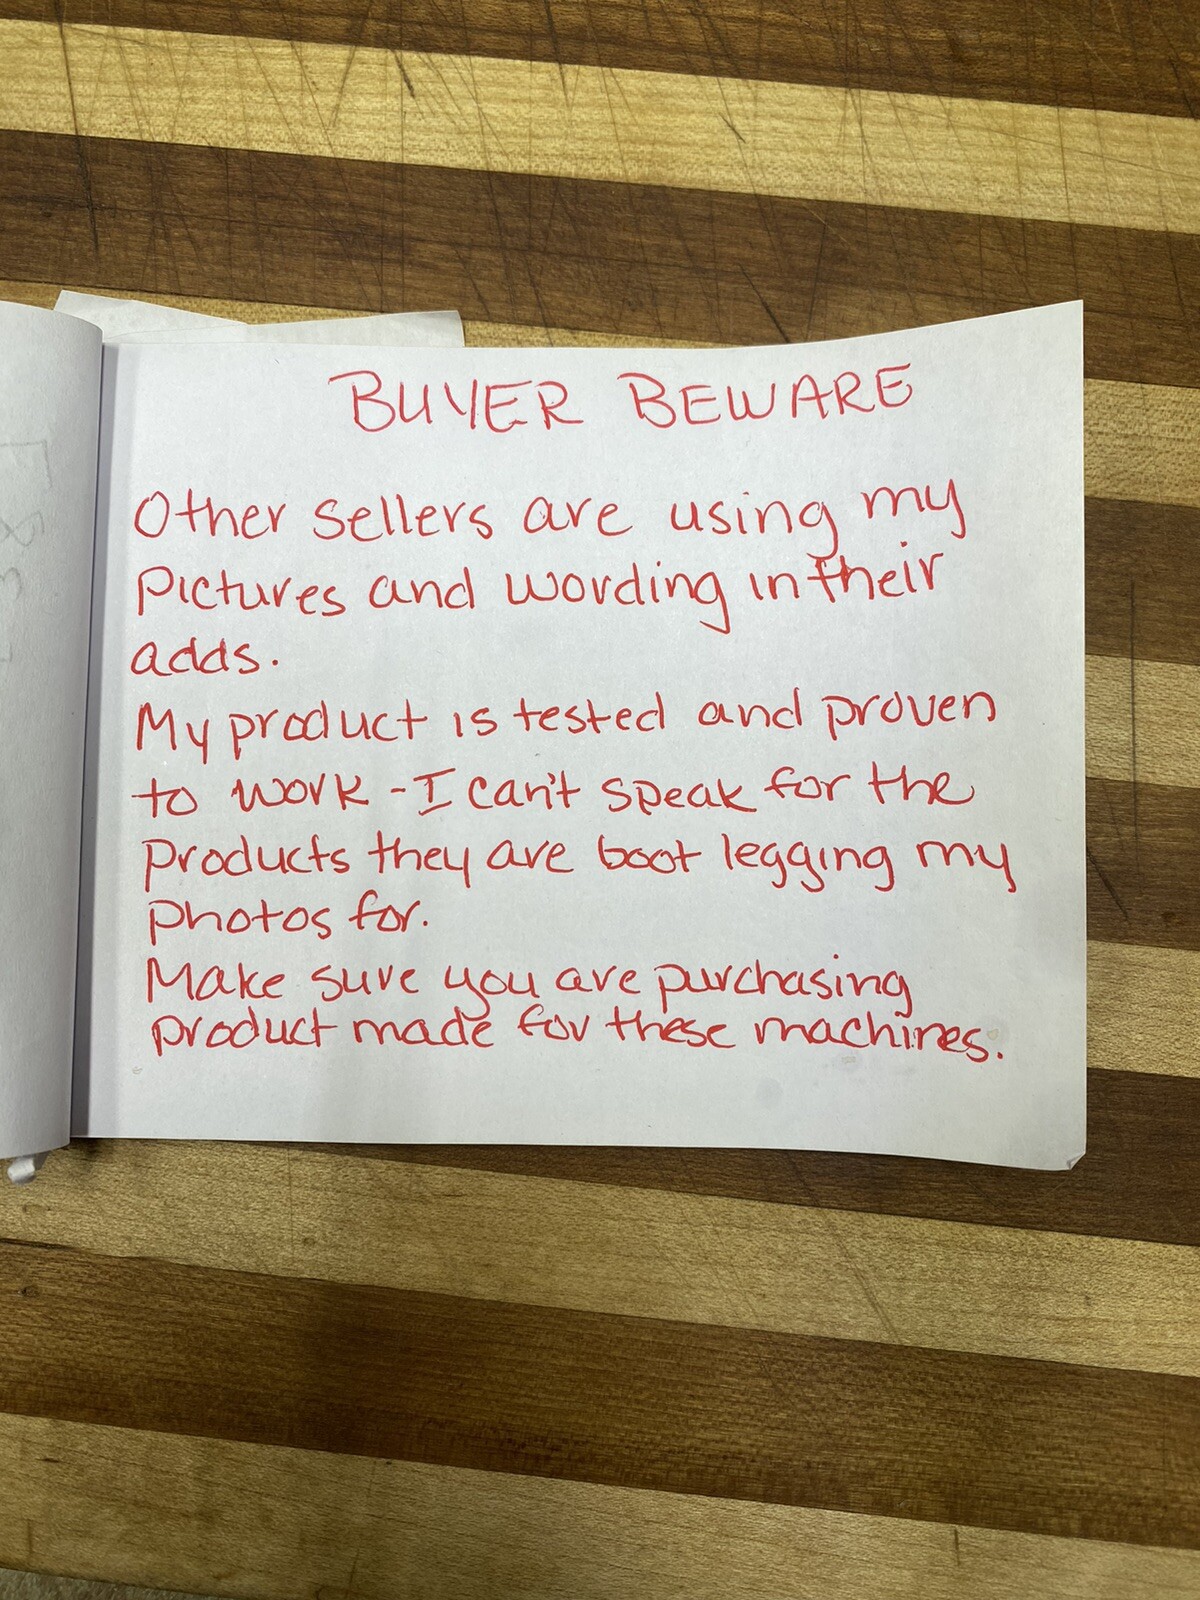 BUYER BEWARE
Other sellers are using my
pictures and wording in their
adds.
My product is tested and proven
to work - I can't speak for the
products they are boot legging my
photos for.
Make sure you are purchasing
product made for these machines.